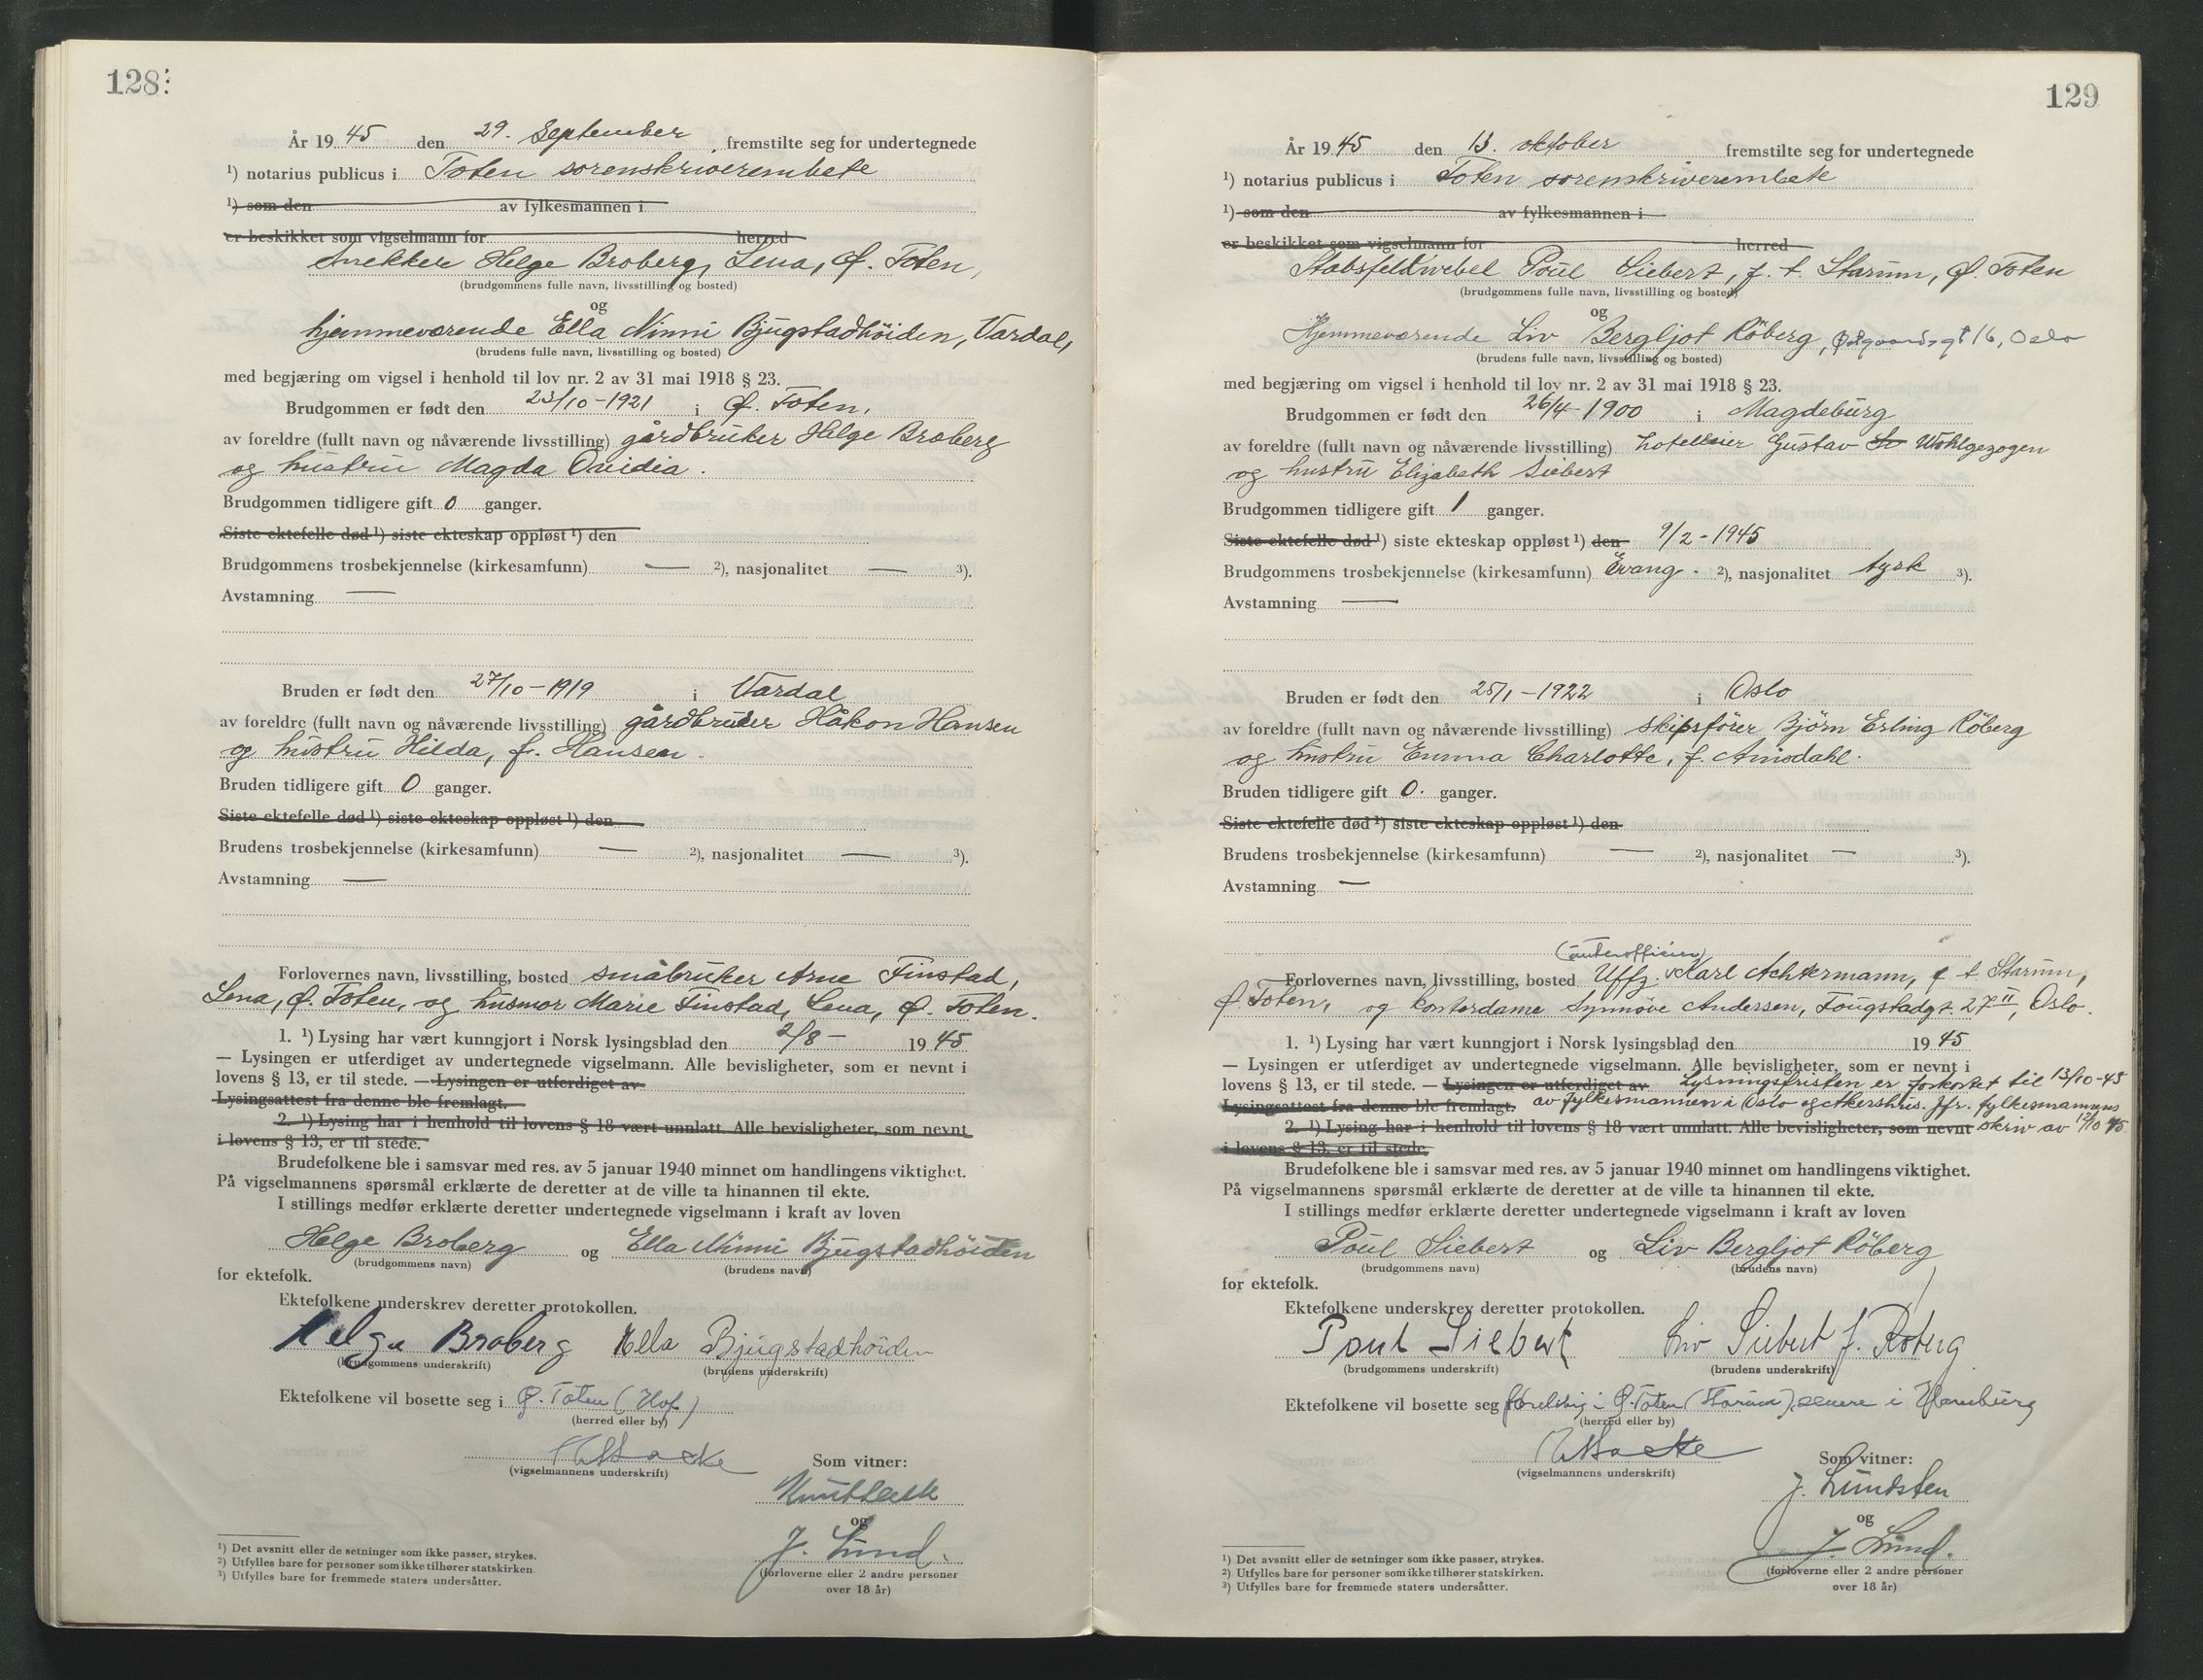 128
År 1945 den 29. September fremstilte seg for undertegnede
¹) notarius publicus i Toten sorenskriverembete
¹) som den av fylkesmannen i
er beskikket som vigselmann for herred
Snekker Helge Broberg, Lena, Ø. Toten,
(brudgommens fulle navn, livsstilling og bosted)
og
hjemmeværende Ella Ninni Bjugstadhöiden, Vardal,
(brudens fulle navn, livsstilling og bosted)
med begjæring om vigsel i henhold til lov nr. 2 av 31 mai 1918 § 23.
Brudgommen er født den 23/10-1921 i Ø. Toten,
av foreldre (fullt navn og nåværende livsstilling) gårdbruker Helge Broberg
og hustru Magda Ovidia.
Brudgommen tidligere gift 0 ganger.
Siste ektefelle død ¹) siste ekteskap oppløst ¹) den
Brudgommens trosbekjennelse (kirkesamfunn) — ²), nasjonalitet — ³).
Avstamning —
Bruden er født den 27/10-1919 i Vardal
av foreldre (fullt navn og nåværende livsstilling) gårdbruker Håkon Hansen
og hustru Hilda, f. Hansen.
Bruden tidligere gift 0 ganger.
Siste ektefelle død ¹) siste ekteskap oppløst ¹) den
Brudens trosbekjennelse (kirkesamfunn) — ²), nasjonalitet — ³).
Avstamning —
Forlovernes navn, livsstilling, bosted småbruker Arne Finstad,
Lena, Ø. Toten, og husmor Marie Finstad, Lena, Ø. Toten.
1. ¹) Lysing har vært kunngjort i Norsk lysingsblad den 2/8 - 1945
— Lysingen er utferdiget av undertegnede vigselmann. Alle bevisligheter, som er nevnt i
lovens § 13, er til stede. — Lysingen er utferdiget av
Lysingsattest fra denne ble fremlagt.
2. ¹) Lysing har i henhold til lovens § 18 vært unnlatt. Alle bevisligheter, som nevnt
i lovens § 13, er til stede.
Brudefolkene ble i samsvar med res. av 5 januar 1940 minnet om handlingens viktighet.
På vigselmannens spørsmål erklærte de deretter at de ville ta hinannen til ekte.
I stillings medfør erklærte deretter undertegnede vigselmann i kraft av loven
Helge Broberg og Ella Ninni Bjugstadhöiden
(brudgommens navn) (brudens navn)
for ektefolk.
Ektefolkene underskrev deretter protokollen.
Helge Broberg Ella Bjugstadhöiden
(brudgommens underskrift) (brudens underskrift)
Ektefolkene vil bosette seg i Ø. Toten (Hof)
(herred eller by)
(vigselmannens underskrift)
Som vitner:
og
J. Lund.
(forloverne eller 2 andre personer
over 18 år)
¹) Det avsnitt eller de setninger som ikke passer, strykes.
²) Utfylles bare for personer som ikke tilhører statskirken.
³) Utfylles bare for fremmede staters undersåtter.
129
År 1945 den 13. oktober fremstilte seg for undertegnede
¹) notarius publicus i Toten sorenskriverembete
¹) som den av fylkesmannen i
er beskikket som vigselmann for herred
Stabsfeldwebel Poul Siebert, f. t. Starum, Ø. Toten
(brudgommens fulle navn, livsstilling og bosted)
og
Hjemmeværende Liv Bergljot Röberg, 16, Oslo
(brudens fulle navn, livsstilling og bosted)
med begjæring om vigsel i henhold til lov nr. 2 av 31 mai 1918 § 23.
Brudgommen er født den 26/4-1900 i Magdeburg
av foreldre (fullt navn og nåværende livsstilling) hotelleier Gustav Wohlgezogen
og hustru Elizabeth Siebert
Brudgommen tidligere gift 1 ganger.
Siste ektefelle død ¹) siste ekteskap oppløst ¹) den 9/2-1945
Brudgommens trosbekjennelse (kirkesamfunn) Evang. ²), nasjonalitet tysk ³).
Avstamning —
Bruden er født den 25/1-1922 i Oslo
av foreldre (fullt navn og nåværende livsstilling) skipsfører Björn Erling Röberg
og hustru Emma Charlotte, f. Amodahl.
Bruden tidligere gift 0. ganger.
Siste ektefelle død ¹) siste ekteskap oppløst ¹) den
Brudens trosbekjennelse (kirkesamfunn) — ²), nasjonalitet — ³).
Avstamning —
(unterofficier)
Forlovernes navn, livsstilling, bosted Uffz. Karl Achtermann, f t Starum,
Ø. Toten, og kontordame Synnöve Andersen, Fougstadgt. 27 II, Oslo.
1. ¹) Lysing har vært kunngjort i Norsk lysingsblad den 1945
— Lysingen er utferdiget av undertegnede vigselmann. Alle bevisligheter, som er nevnt i
lovens § 13, er til stede. — Lysingen er utferdiget av Lysningsfristen er forkortet til 13/10-45
Lysingsattest fra denne ble fremlagt. av fylkesmannen i Oslo og Akershus. Jfr. fylkesmannens
2. ¹) Lysing har i henhold til lovens § 18 vært unnlatt. Alle bevisligheter, som nevnt skriv av 12/10 45
i lovens § 13, er til stede.
Brudefolkene ble i samsvar med res. av 5 januar 1940 minnet om handlingens viktighet.
På vigselmannens spørsmål erklærte de deretter at de ville ta hinannen til ekte.
I stillings medfør erklærte deretter undertegnede vigselmann i kraft av loven
Poul Siebert og Liv Bergljot Röberg
(brudgommens navn) (brudens navn)
for ektefolk.
Ektefolkene underskrev deretter protokollen.
Poul Siebert Liv Siebert f. Röberg
(brudgommens underskrift) (brudens underskrift)
Ektefolkene vil bosette seg foreløbig i Ø. Toten (Starum), senere i Hamburg
(herred eller by)
(vigselmannens underskrift)
Som vitner:
J. Lundsten
og
J. Lund.
(forloverne eller 2 andre personer
over 18 år)
¹) Det avsnitt eller de setninger som ikke passer, strykes.
²) Utfylles bare for personer som ikke tilhører statskirken.
³) Utfylles bare for fremmede staters undersåtter.